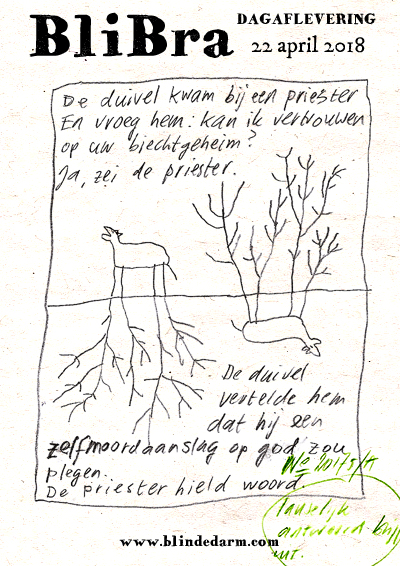 BliBra
DAGAFLEVERING
22 april 2018
De duivel kwam bij een priester
En vroeg hem: kan ik vertrouwen
op uw biechtgeheim?
Ja, zei de priester.
De duivel
vertelde hem
dat hij een
zelfmoordaanslag op god zou
plegen.
De priester hield woord.
www.blindedarm.com